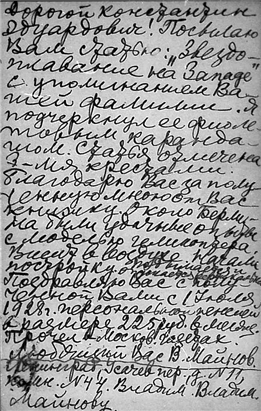 Дорогой Константин
Эдуардович! Посылаю
Вам статью: „Звездо-
плавание на Западе"
с упоминанием Ва-
шей фамилии. Я
подчеркнул ее фиоле-
товым каранда-
шом. Статья отмечена
3-мя крестами.
Благодарю Вас за полу-
ченную мною от Вас
книжку. Около Берли-
на были удачные опыты
с моделью геликоптера.
Начали
постройку
Поздравляю Вас с полу-
ченной Вами с 1 июля
1928г. персональной пенсией
в размере 225 руб. в месяц.
Прочел в Москов. газетах.
Любящий Вас В. Майнов
Ленинград, Усачев пер. д. N 11,
комн. N 44. Владим. Владим.
Майнову.